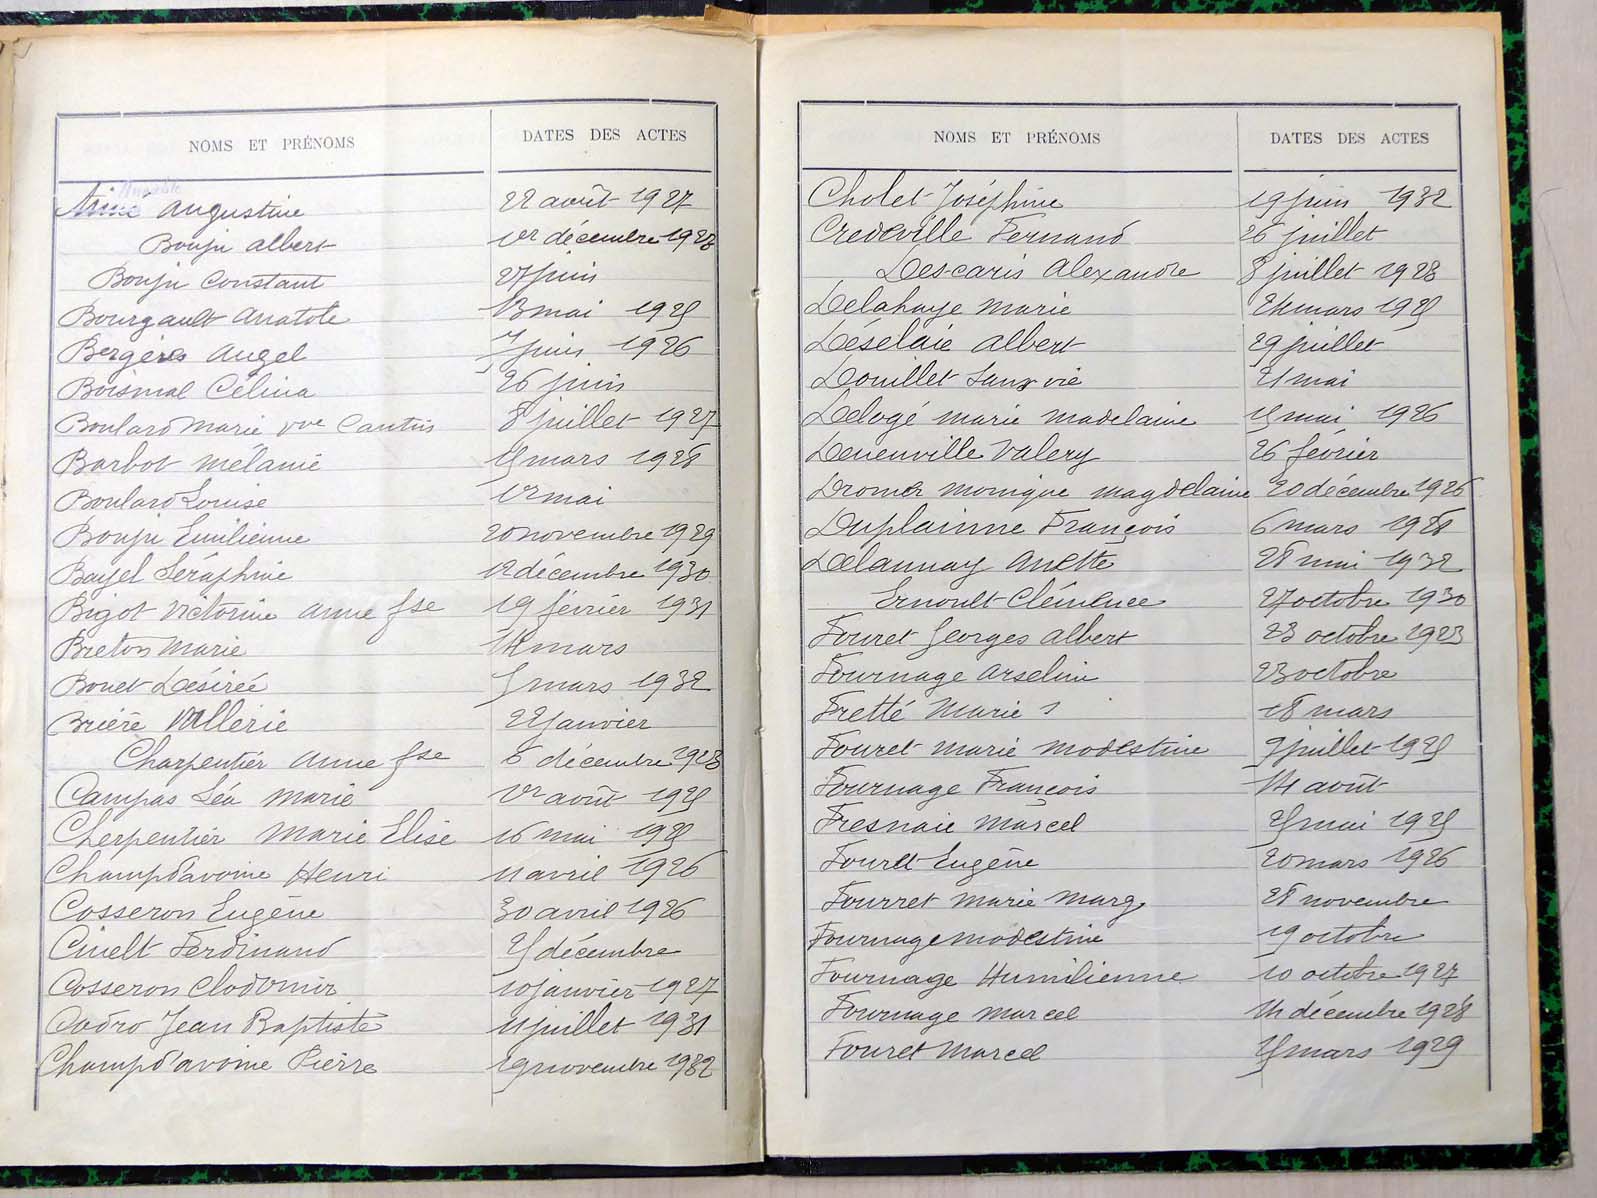 NOMS ET PRÉNOMS DATES DES ACTES
Aimé Augustine 22 août 1927
Bouju Albert 1er décembre 1923
Bouju Constant 27 juin
Bourgault Anatole 13 mai 1925
Bergères Angel 7 juin 1926
Boismal Célina 26 juin
Boulard Marie vve 8 juillet 1927
Barbot Mélanie 15 mars 1928
Boulard Louise 12 mai
Bouju Emilienne 20 novembre 1929
Bayel Séraphine 12 décembre 1930
Bigot Victorine Anne fse 19 février 1931
Breton Marie 14 mars
Bouet Désirée 5 mars 1932
Brière Vallérie 22 janvier
Charpentier Anne fse 6 décembre 1923
Campas Léa Marie 1er août 1925
Cherpentier Marie Elise 16 mai 1925
Champd'avoine Henri 11 avril 1926
Cosseron Eugène 30 avril 1926
Cinelt Ferdinand 25 décembre
Cosseron Clodomir 10 janvier 1927
Cadro Jean Baptiste 11 juillet 1931
Champd'avoine Pierre 19 novembre 1932
NOMS ET PRÉNOMS DATES DES ACTES
Cholet Joséphine 19 juin 1932
Credeville Fernand 26 juillet
Descaris Alexandre 8 juillet 1923
Delahaye Marie 24 mars 1925
Désélaie Albert 29 juillet
Douillet Sanx vie 21 mai
Delogé Marie Madelaine 15 mai 1926
Deneuville Valery 26 février
Dromer Monique Magdelaine 20 décembre 1926
Duplainne François 6 mars 1928
Delaunay Anette 28 mai 1932
Ernoult Clémence 27 octobre 1930
Fouret Georges Albert 23 octobre 1923
Fournage Arseline 23 octobre
Fretté Marie 18 mars
Fouret Marie Modestine 9 juillet 1925
Fournage François 14 août
Fresnaie Marcel 25 mai 1925
Fouret Eugène 20 mars 1926
Fourret Marie Marg 28 novembre
Fournage Modestine 19 octobre
Fournage Humilienne 10 octobre 1927
Fournage Marcel 14 décembre 1928
Fouret Marcel 25 mars 1929